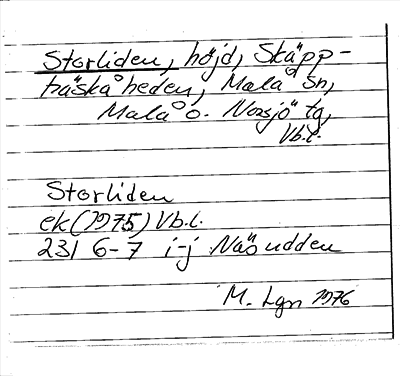 Storliden, höjd, Skäpp-
träskåheden, Malå sn,
Malå o. Norsjö tg,
Vb.l.
Storliden
ek (1975) Vb.l.
23I 6-7 i-j Näsudden
M. Lgn 1976